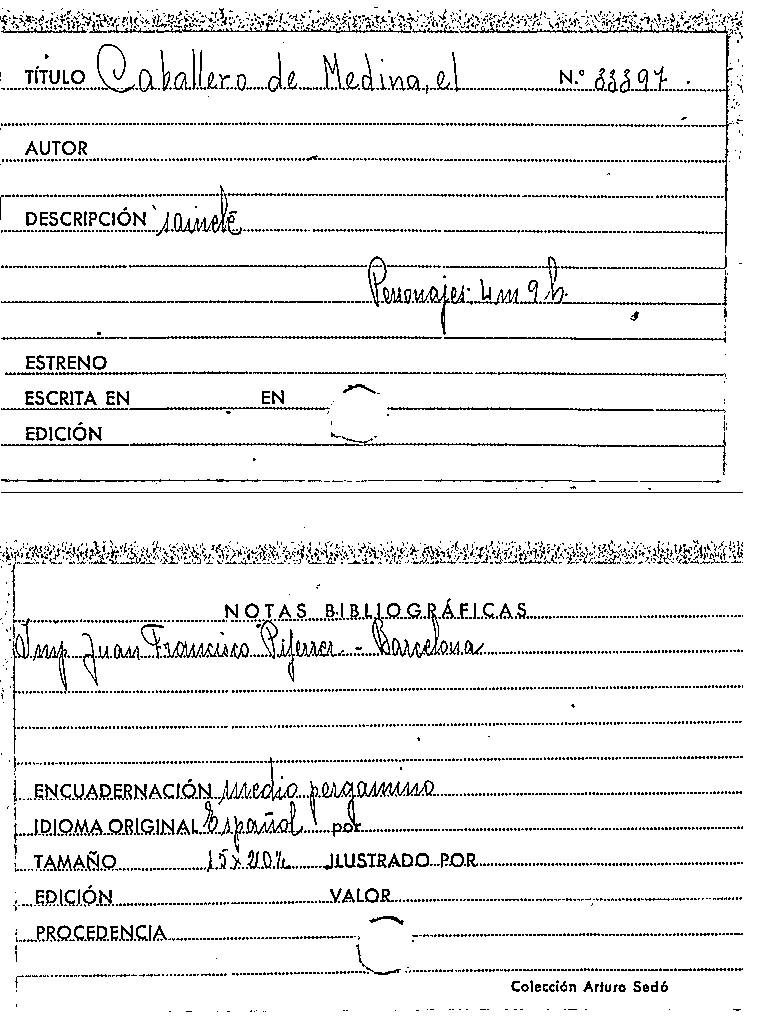 TÍTULO Caballero de Medina, el N.º 33397.
AUTOR
DESCRIPCIÓN sainete
Personajes: 4 m 9 h
ESTRENO
ESCRITA EN EN
EDICIÓN
NOTAS BIBLIOGRÁFICAS
Imp. Juan Francisco Piferrer. - Barcelona
ENCUADERNACIÓN medio pergamino
IDIOMA ORIGINAL Español por
TAMAÑO 15 x 20½ ILUSTRADO POR
EDICIÓN VALOR
PROCEDENCIA
Colección Arturo Sedó